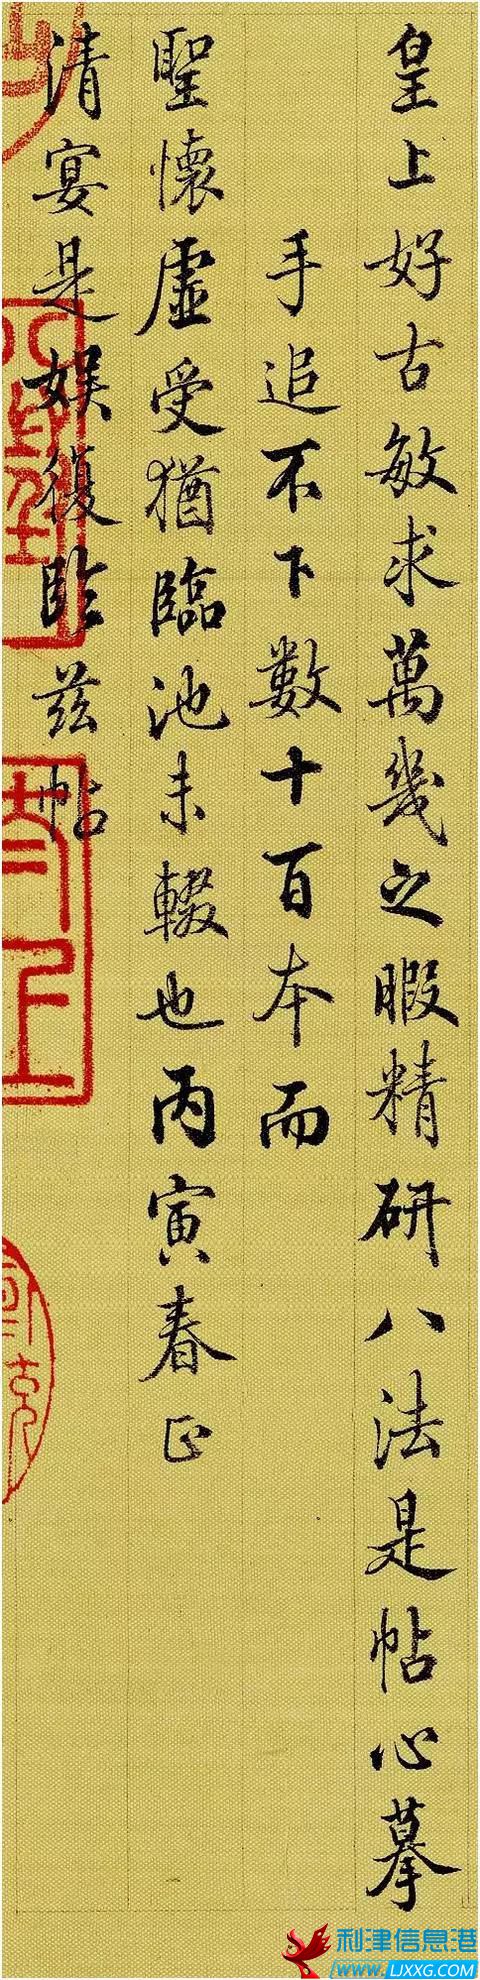 皇上好古敏求萬幾之暇精研八法是帖心摹
手追不下數十百本而
聖懷虛受猶臨池未輟也丙寅春正
清宴是娛復臨茲帖
利津信息港
www.LJXXG.COM